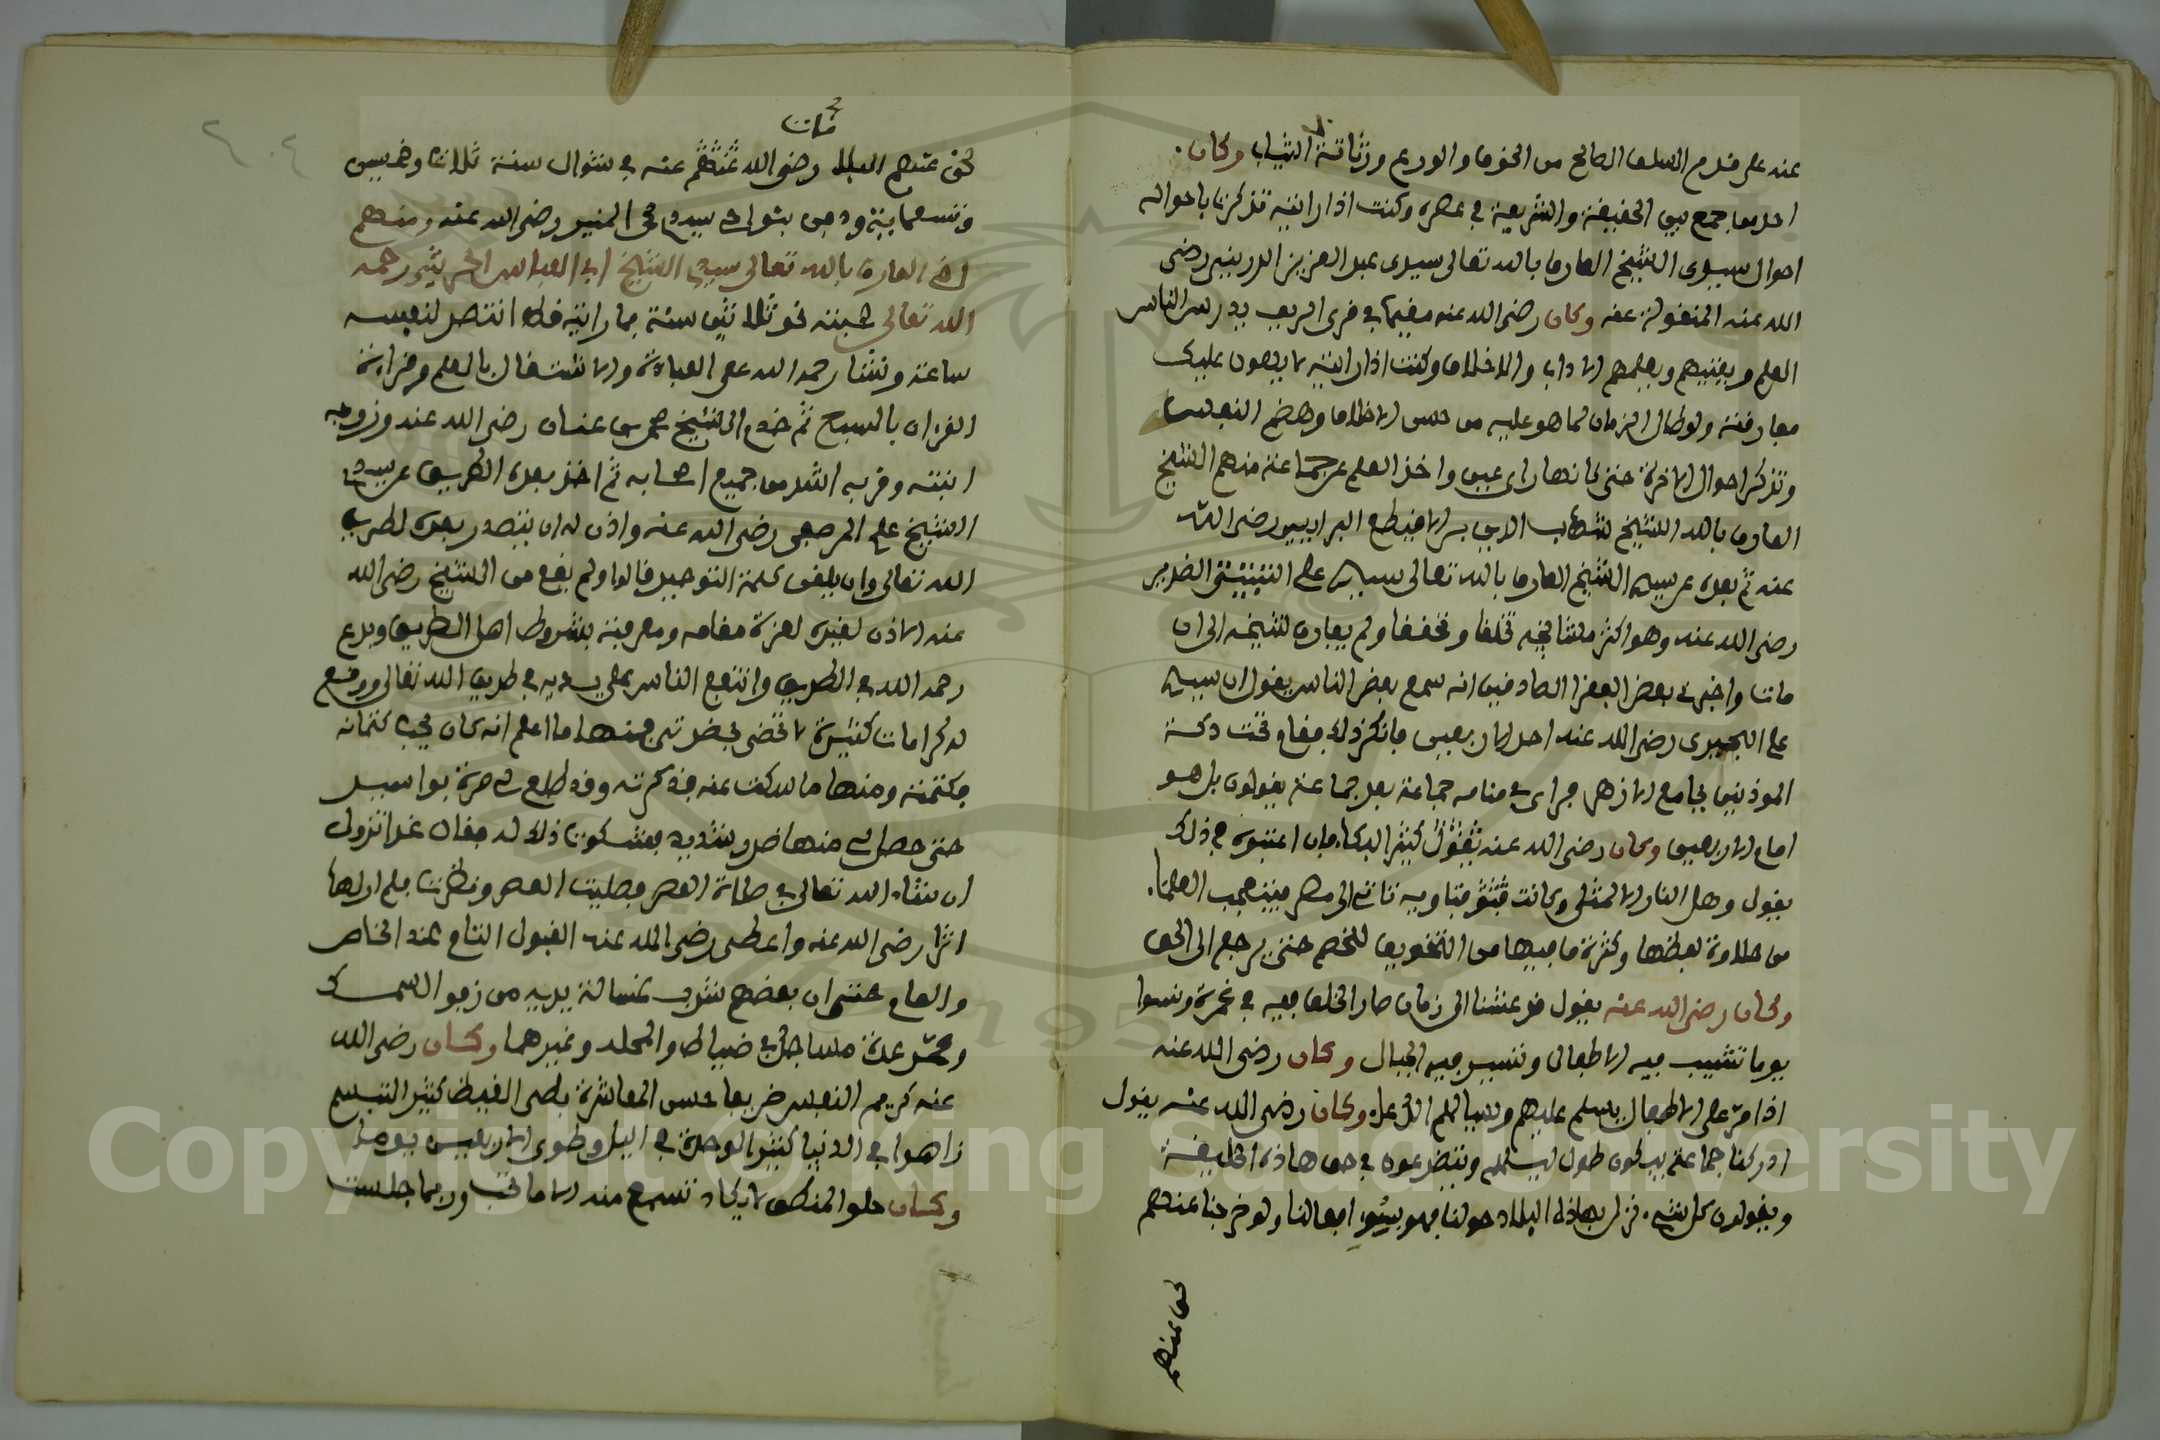 عنه على قدم السلف الصالح من الخوف والورع ورثاثة الثياب وكان
احد من جمع بين الحقيقة والشريعة في عصره وكنت اذا رايته تذكرنا باحواله
احوال سيدي الشيخ العارف بالله تعالى سيدي عبد العزيز الدريني رضي
الله عنه المنقولة عنه وكان رضي الله عنه مقيما في قرى الريف يدرس الناس
العلم ويفتيهم ويعلمهم الاداب والاخلاق وكنت اذا رايته لا يهون عليك
مفارقته ولو طال الزمان لما هو عليه من حسن الاخلاق وهضم النفس
وتذكر احوال الاخرة حتى كانها راي عين واخذ العلم عن جماعة منهم الشيخ
العارف بالله الشيخ شهاب الدين بن الاقيطع البرلسي رضي الله
عنه ثم بعده عن سيدي الشيخ العارف بالله تعالى سيدي علي النبتيتي الضرير
رضي الله عنه وهو اكثر مشايخه تخلقا وتحققا ولم يفارق شيخه الى ان
مات واخبرني بعض الفقرا الصادقين انه سمع بعض الناس يقول ان سيدي
علي البحيري رضي الله عنه احد الاربعين فانكر ذلك فنام تحت دكة
الموذنين بجامع الازهر فراى في منامه جماعة بعد جماعة يقولون بل هو
امام الاربعين وكان رضي الله عنه كثير البكا فان اعتبوه في ذلك
يقول وهل النار الا لمثلي وكانت فتاويه تاتي الى مصر فيتعجب العلما
من حلاوة لفظها وكثرة ما فيها من التخويف للخصم حتى يرجع الى الحق
وكان رضي الله عنه يقول قد عشنا الى زمان صار الخلق فيه في غمرة ونسوا
يوما تشيب فيه الاطفال وتسير فيه الجبال وكان رضي الله عنه
اذا مر على الاطفال يسلم عليهم ويسالهم الدعاء وكان رضي الله عنه يقول
ادركنا جماعة يبكون طول ليلهم ويتضرعون في حق هاذه الخليقة
ويقولون كل شيء نزل بهاذه البلاد حولنا فهو بشوم افعالنا ولو خرجنا عنهم
خف عنهم
مات
خف عنهم البلا رضي الله عنه في شوال سنة ثلاث وخمسين
وتسعماية ودفن سيدي محمد المنير رضي الله عنه ومنهم
اخي العارف بالله تعالى سيدي الشيخ ابي العباس الحريثي رحمه
الله تعالى صحبته نحو ثلاثين سنة فما رايته قط انتصر لنفسه
ساعة ونشا رحمه الله على العبادة والاشتغال بالعلم وقراة
القران بالسبع ثم خدم الشيخ محمد بن عنان رضي الله عنه وزوجه
ابنته وقربه اشد من جميع اصحابه ثم اخذ بعده الطريق عن سيدي
الشيخ علي المرصفي رضي الله عنه واذن له ان يتصدر بعده لطريق
الله تعالى وان يلقن كلمة التوحيد قالوا ولم يقع من الشيخ رضي الله
عنه الاذن لغيره لعزة مقامه ومعرفته بشروط اهل الطريق وبرع
رحمه الله في الطريق وانتفع الناس على يديه في طريق الله تعالى ووقع
له كرامات كثيرة لا تحصى بحضرتي فمنها ما اعلم انه كان يحب كتمانه
فكتمته ومنها ما سكت عنه فذكرته وقد طلع لي مرة بواسير
حتى حصل لي منها ضرر شديد فشكوت ذلك له فقال غدا تزول
ان شاء الله تعالى في صلاة العصر فصليت العصر ونظرت فلم ار لها
اثرا رضي الله عنه واعطي رضي الله عنه القبول التام عند الخاص
والعام حتى ان بعضهم شرب غسالة يديه من زفر السمك
وعمر عدة مساجد في ضياط والمحلة وغيرهما وكان رضي الله
عنه كريم النفس ظريفا حسن المعاشرة كثير التبسم
زاهدا في الدنيا كثير الوحدة في الليل وطوى الاربعين يوما
وكان حلو المنطق لا يكاد تسمع منه الا ما تحب وربما جلست